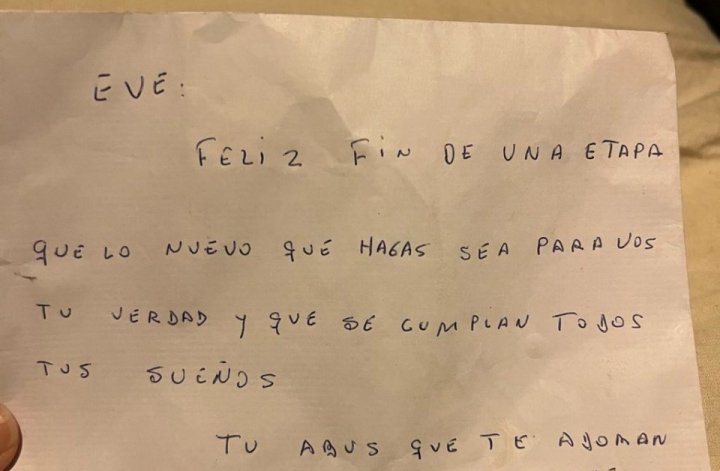 EVE:
FELIZ FIN DE UNA ETAPA
QUE LO NUEVO QUE HAGAS SEA PARA VOS
TU VERDAD Y QUE SE CUMPLAN TODOS
TUS SUEÑOS
TU ABUS QUE TE ADORAN